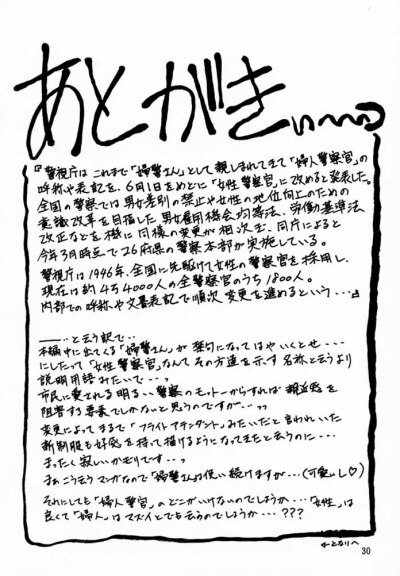 あとがきぃ～～～っ
『警視庁は これまで「婦警さん」として親しまれてきた「婦人警察官」の
呼称や表記を、6月1日をめどに「女性警察官」に改めると発表した。
全国の警察では男女差別の禁止や女性の地位向上のための
意識改革を目指した男女雇用機会均等法、労働基準法
改正などを機に同様の変更が相次ぎ、同庁によると
今年3月時点で26府県の警察本部が実施している。
警視庁は1946年、全国に先駆けて女性の警察官を採用し、
現在は約4万4000人の全警察官のうち1800人。
内部での呼称や文書表記で順次変更を進めるという・・・』
……と云う訳で・・
本編中に出てくる「婦警さん」が禁句になってはや いくとせ・・・・
にしたって「女性警察官」なんて その方達を示す名称と云うより
説明用語みたいで・・・っ
市民に愛される明るい警察のモットーからすれば親近感を
阻害する要素でしかないと思うのですが・・っっ
変更によってまるで「フライトアテンダント」みたいだと言われいた
新制服も好感を持って描けるようになってきたと云うのに・・・
まったく寂しいかぎりです・・っ
まぁこうう マンガなので「婦警さん」は使い続けますが・・・(可愛いし♡)
それにしても「婦人警官」のどこがいけないのでしょうか・・・「女性」は
良くて「婦人」はマズイとでも云うのでしょうか・・・???
30